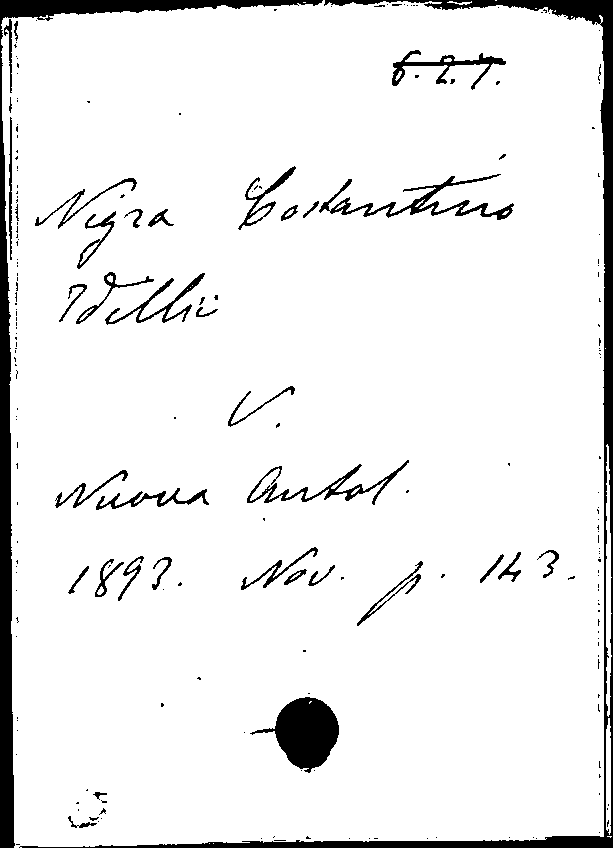 6. 2. 7.
Nigra Costantino
Idillii
V.
Nuova Antol.
1893. Nov. p. 143.